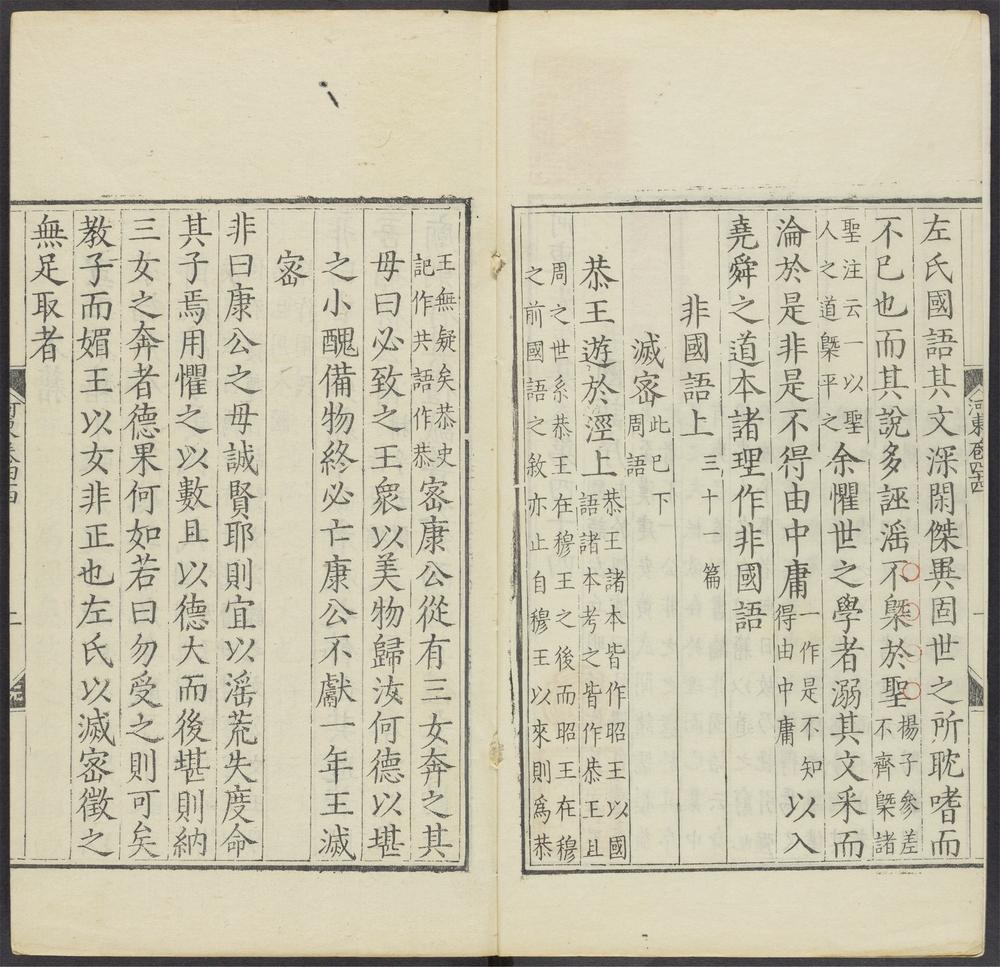 左氏國語其文深閎傑異固世之所耽嗜而
不已也而其說多誣淫不槩於聖揚子參差不齊槩諸
聖注云一以聖人之道槩平之余懼世之學者溺其文采而
淪於是非是不得由中庸一作是不知得由中庸以入
堯舜之道本諸理作非國語
非國語上三十一篇
滅密此已下周語
恭王遊於涇上恭王諸本皆作昭王以國語諸本考之皆作恭王且
周之世系恭王在穆王之後而昭王在穆之前國語之敘亦止自穆王以來則爲恭
王無疑矣恭史記作共語作恭密康公從有三女奔之其
母曰必致之王衆以美物歸汝何德以堪
之小醜備物終必亡康公不獻一年王滅
密
非曰康公之母誠賢耶則宜以淫荒失度命
其子焉用懼之以數且以德大而後堪則納
三女之奔者德果何如若曰勿受之則可矣
教子而媚王以女非正也左氏以滅密徵之
無足取者
河東卷四十四